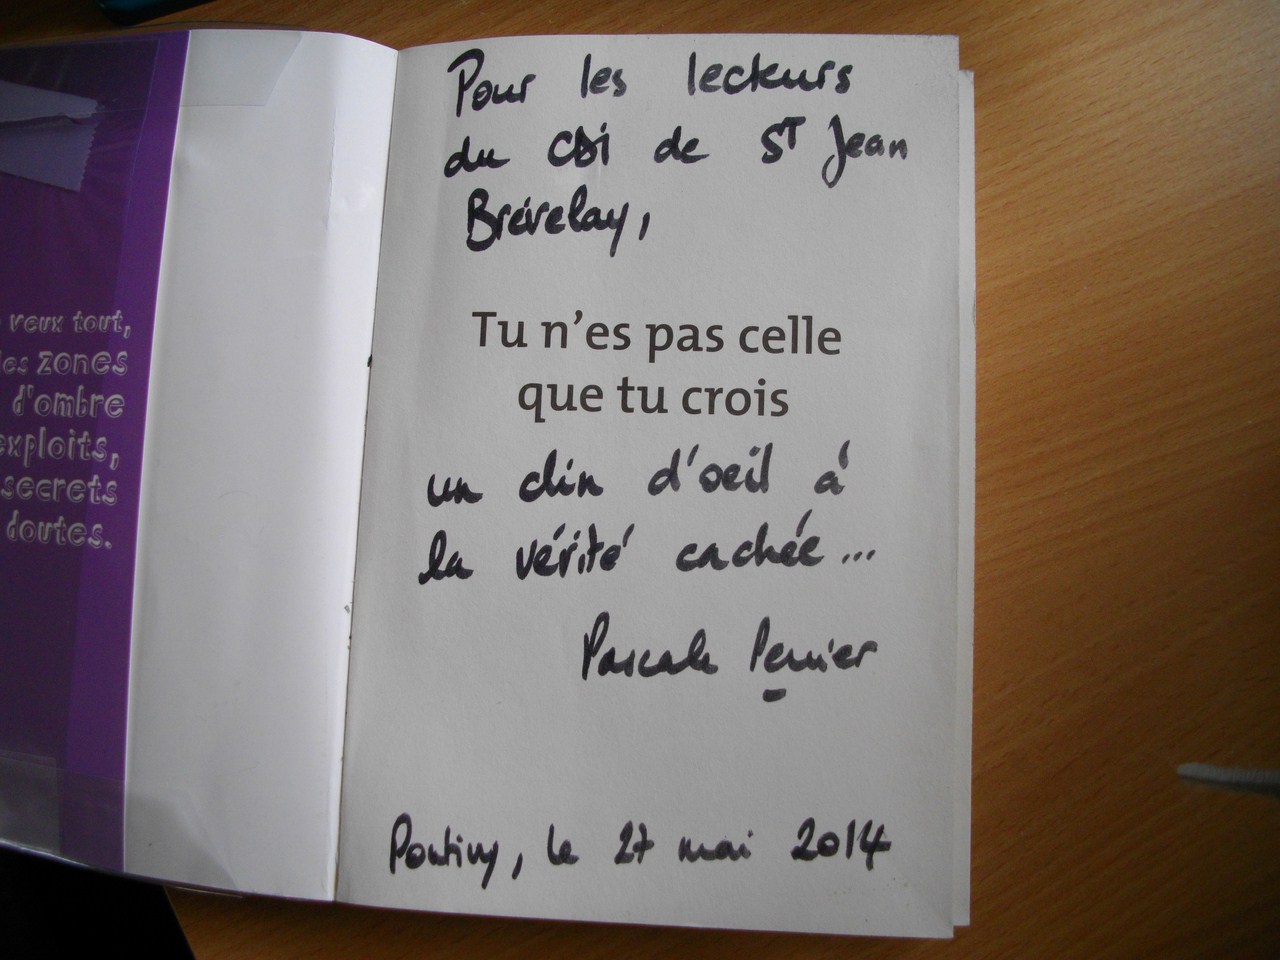 veux tout,
les zones
d'ombre
exploits,
secrets
doutes.
Pour les lecteurs
du CDI de ST Jean
Brévelay,
Tu n'es pas celle
que tu crois
un clin d'oeil à
la vérité cachée...
Pascale Perrier
Pontivy, le 27 mai 2014